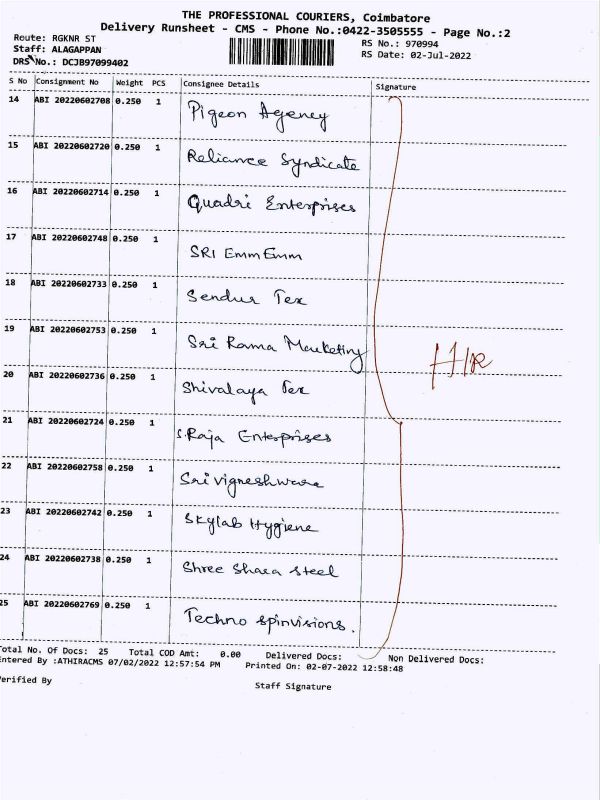 THE PROFESSIONAL COURIERS, Coimbatore
Delivery Runsheet - CMS - Phone No.:0422-3505555 - Page No.:2
Route: RGKNR ST
RS No.: 970994
Staff: ALAGAPPAN
RS Date: 02-Jul-2022
DRS No.: DCJB97099402
S No Consignment No Weight PCS Consignee Details Signature
14 ABI 20220602708 0.250 1 Pigeon Agency
15 ABI 20220602720 0.250 1 Reliance Syndicate
16 ABI 20220602714 0.250 1 Quadri Enterprises
17 ABI 20220602748 0.250 1 SRI Emm Emm
18 ABI 20220602733 0.250 1 Sendur Tex
19 ABI 20220602753 0.250 1 Sri Rama Marketing
H/R
20 ABI 20220602736 0.250 1 Shivalaya Tex
21 ABI 20220602724 0.250 1 S.Raja Enterprises
22 ABI 20220602758 0.250 1 Sri vigneshwara
23 ABI 20220602742 0.250 1 Skylab Hygiene
24 ABI 20220602738 0.250 1 Shree Shara Steel
25 ABI 20220602769 0.250 1 Techno spinvisions.
Total No. Of Docs: 25 Total COD Amt: 0.00 Delivered Docs: Non Delivered Docs:
Entered By :ATHIRACMS 07/02/2022 12:57:54 PM Printed On: 02-07-2022 12:58:48
Verified By Staff Signature